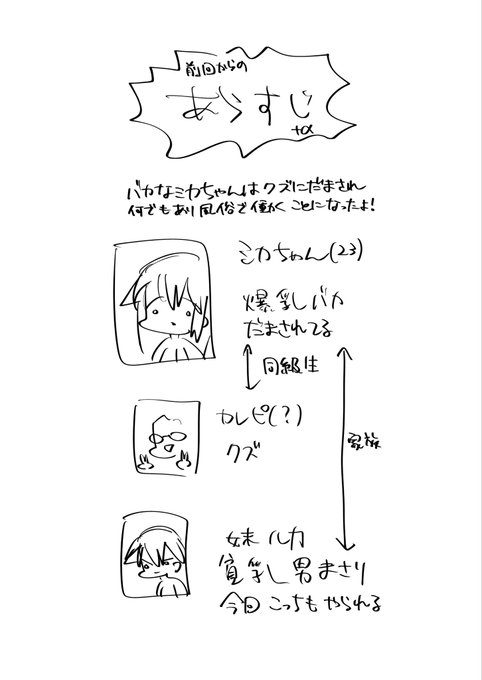 前回からの
あらすじ
+α
バカなミカちゃんはクズにだまされ
何でもあり風俗で働くことになったよ!
ミカちゃん(23)
爆乳バカ
だまされてる
同級生
カレピ(?)
クズ
家族
妹 ルカ
貧乳 男まさり
今回こっちもやられる